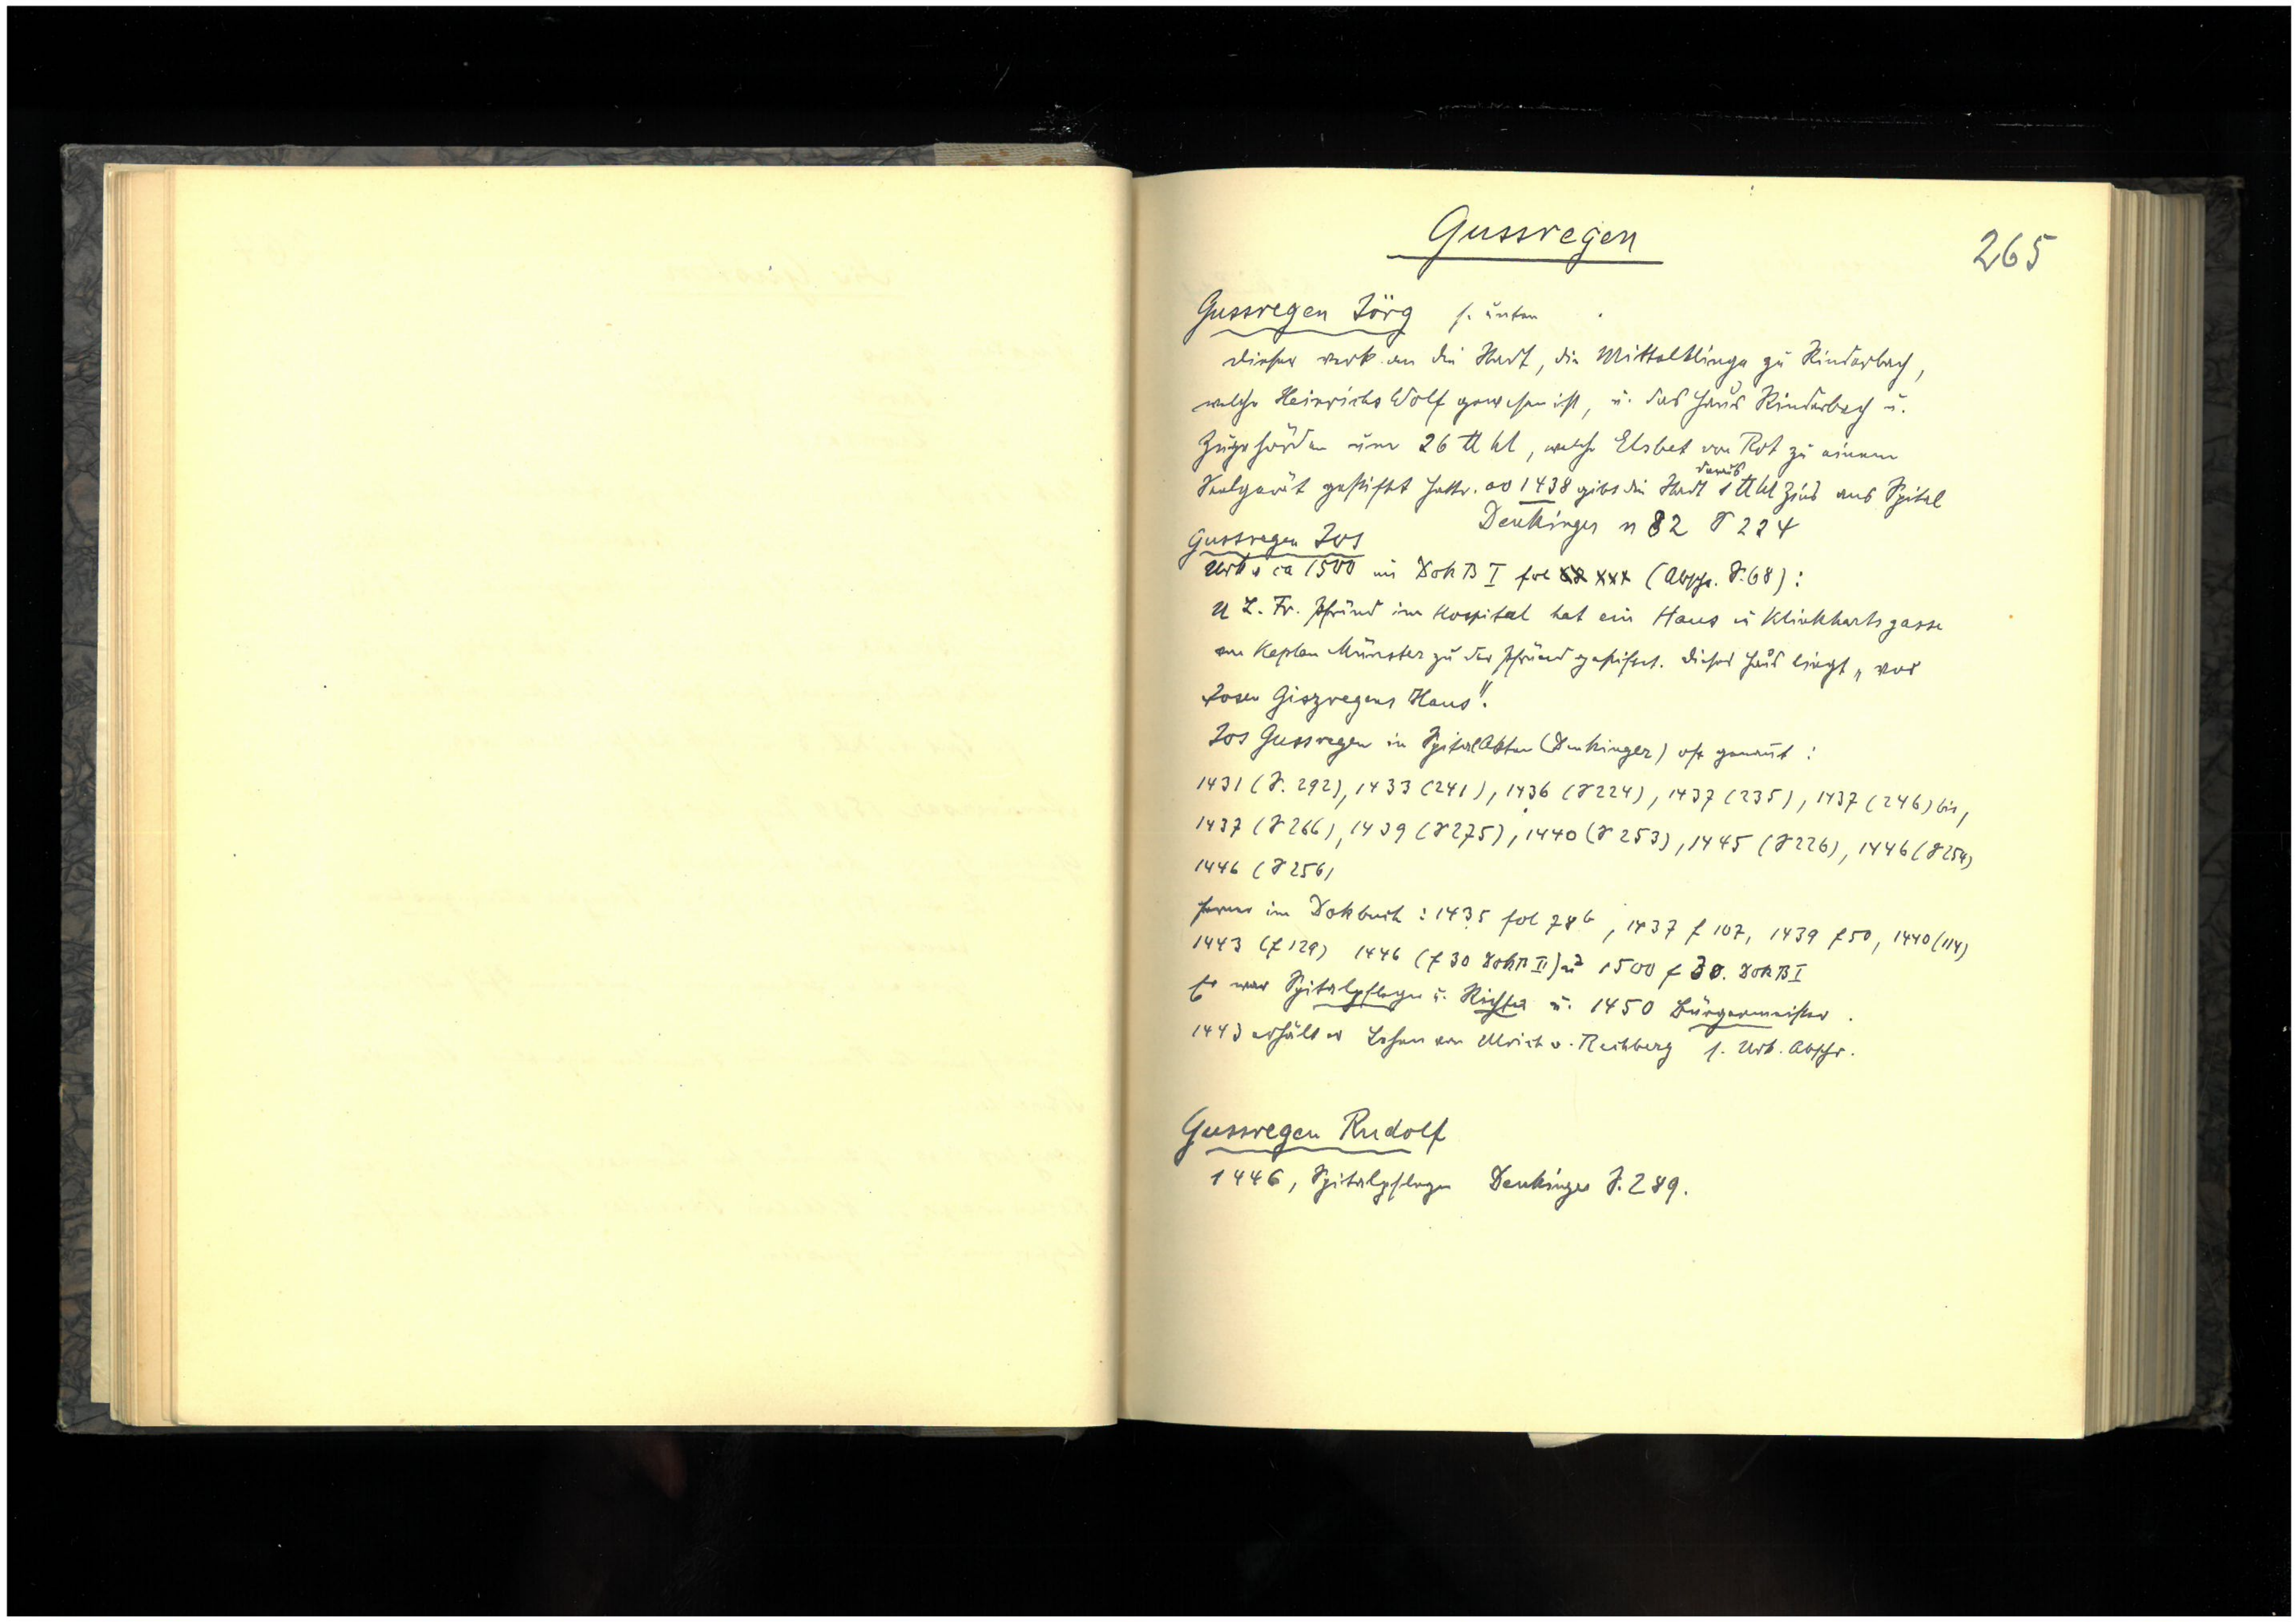 Gussregen
265
Gussregen Jörg s. unten
dieser verk. an die Stadt, die Mittelklinge zu Rinderbach,
welche Heinrichs Wolf gewesen ist, u. das Haus Rinderbach u.
Zugehörden um 26 ℔ hl, welche Elsbet von Rot zu einem
Seelgerät gestiftet hatte. ao 1438 gibt die Stadt daraus 1 ℔ hl Zins ans Spital
Denkinger n 82 S 224
Gussregen Jos
Urk v ca 1500 im DokB I fol xxx (Abschr. S. 68):
U L. Fr. Pfründ im Hospital hat ein Haus in Klinkhartsgasse
von Kaplan Münster zu der Pfründ gestiftet. Dieses Haus liegt „vor
Josen Giszregens Haus".
Jos Gussregen in Spitalakten (Denkinger) oft genannt:
1431 (S. 292), 1433 (241), 1436 (S 224), 1437 (235), 1437 (246) bis,
1437 (S 266), 1439 (S 275), 1440 (S 253), 1445 (S 226), 1446 (S 254)
1446 (S 256)
ferner im Dokbuch: 1435 fol 78b, 1437 f 107, 1439 f 50, 1440 (114)
1443 (f 129) 1446 (f 30 DokB II) u 1500 f 30. DokB I
Er war Spitalpfleger u. Richter u. 1450 Bürgermeister.
1443 erhält er Lehen von Ulrich v. Rechberg s. Urk. Abschr.
Gussregen Rudolf
1446, Spitalpfleger Denkinger S. 289.